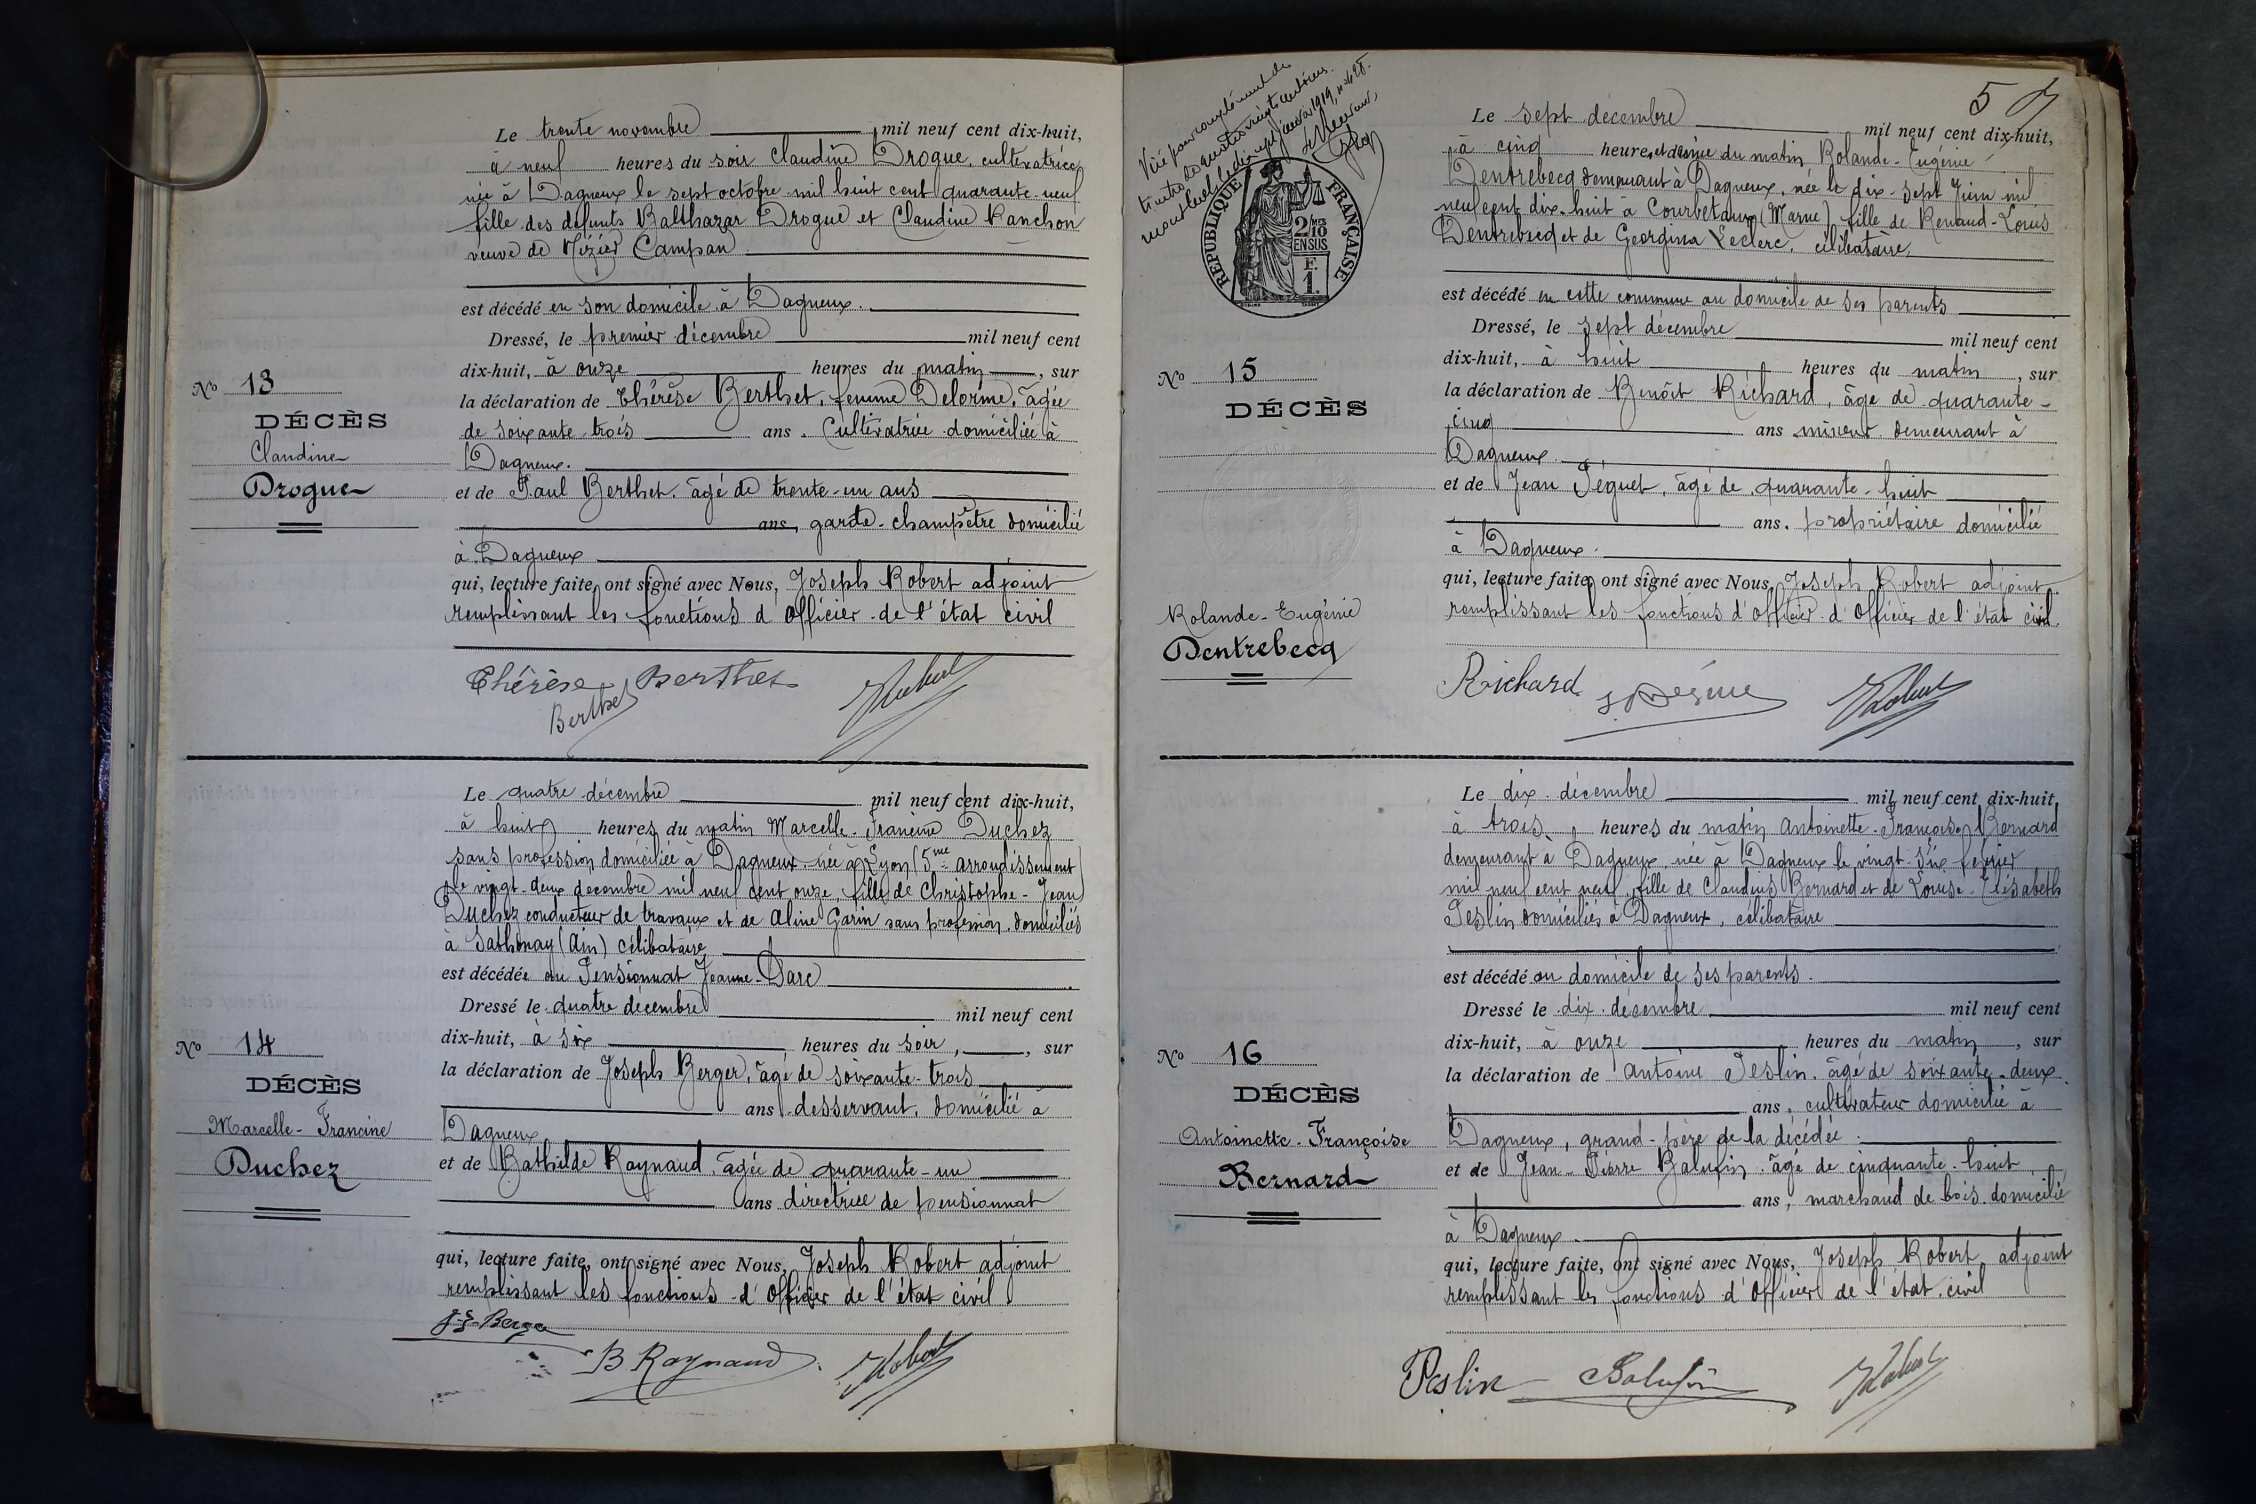 Le trente novembre mil neuf cent dix-huit,
à neuf heures du soir Claudine Drogue, cultivatrice
née à Dagneux le sept octobre mil huit cent quarante-neuf
fille des défunts Balthazar Drogue et Claudine Ranchon
veuve de Nizier Campan
est décédé en son domicile à Dagneux.
Dressé, le premier décembre mil neuf cent
dix-huit, à onze heures du matin, sur
la déclaration de Thérèse Berthet, femme Delorme, âgée
de soixante-trois ans. Cultivatrice domiciliée à
Dagneux.
et de Paul Berthet, âgé de trente-un ans
ans, garde-champêtre domicilié
à Dagneux
qui, lecture faite, ont signé avec Nous, Joseph Robert adjoint
remplissant les fonctions d'officier de l'état civil
Thérèse Berthet
Berthet
JRobert
No 13
DÉCÈS
Claudine
Drogue
Le quatre décembre mil neuf cent dix-huit,
à huit heures du matin Marcelle-Francine Duchez
sans profession, domiciliée à Dagneux née à Lyon (5me arrondissement)
le vingt-deux decembre mil neuf cent onze, fille de Christophe-Jean
Duchez conducteur de travaux et de Aline Garin sans profession, domiciliés
à Sathonay (Ain) célibataire
est décédée au Pensionnat Jeanne-Darc
Dressé le quatre décembre mil neuf cent
dix-huit, à six heures du soir, sur
la déclaration de Joseph Berger, âgé de soixante-trois
ans desservant, domicilié à
Dagneux
et de Bathilde Raynaud, âgée de quarante-un
ans directrice de pensionnat
qui, lecture faite, ont signé avec Nous, Joseph Robert adjoint
remplissant les fonctions d'officier de l'état civil
Berger
B Raynaud
JRobert
No 14
DÉCÈS
Marcelle-Francine
Duchez
5
Visé pour complément de
janvier 1919, no 498.
RÉPUBLIQUE FRANÇAISE
2/10 MES
EN SUS
F.
1.
Le sept décembre mil neuf cent dix-huit,
à cinq heures et demie du matin Rolande-Eugénie
Dentrebecq demeurant à Dagneux, née le dix-sept Juin mil
neuf cent dix-huit à Courbetaux (Marne), fille de Renaud-Louis
Dentrebecq et de Georgina Leclerc, célibataire,
est décédé en cette commune au domicile de ses parents
Dressé, le sept décembre mil neuf cent
dix-huit, à huit heures du matin, sur
la déclaration de Benoît Richard, âgé de quarante-
cinq ans mineur demeurant à
Dagneux.
et de Jean Péguet, âgé de quarante-huit
ans. propriétaire domicilié
à Dagneux.
qui, lecture faite, ont signé avec Nous, Joseph Robert adjoint
remplissant les fonctions d'officier d'officier de l'état civil.
Richard
JRobert
No 15
DÉCÈS
Rolande-Eugénie
Dentrebecq
Le dix décembre mil neuf cent dix-huit,
à trois heures du matin Antoinette-Françoise Bernard
demeurant à Dagneux née à Dagneux le vingt-six février
mil neuf cent neuf, fille de Claudius Bernard et de Louise-Elisabeth
Peslin domiciliés à Dagneux, célibataire
est décédé au domicile de ses parents.
Dressé le dix décembre mil neuf cent
dix-huit, à onze heures du matin, sur
la déclaration de Antoine Peslin, âgé de soixante-deux
ans, cultivateur domicilié à
Dagneux, grand-père de la décédée.
et de Jean-Pierre Balufin, âgé de cinquante-huit
ans, marchand de bois domicilié
à Dagneux.
qui, lecture faite, ont signé avec Nous, Joseph Robert adjoint
remplissant les fonctions d'officier de l'état civil
Peslin
Balufin
JRobert
No 16
DÉCÈS
Antoinette-Françoise
Bernard